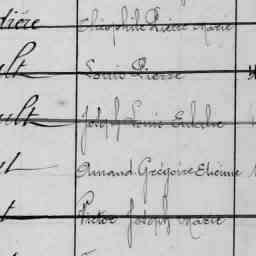 dière Théophile Pierre Marie
lt Louis Pierre
ult Joseph Louis
t Amand Grégoire Etienne
t Victor Joseph Marie